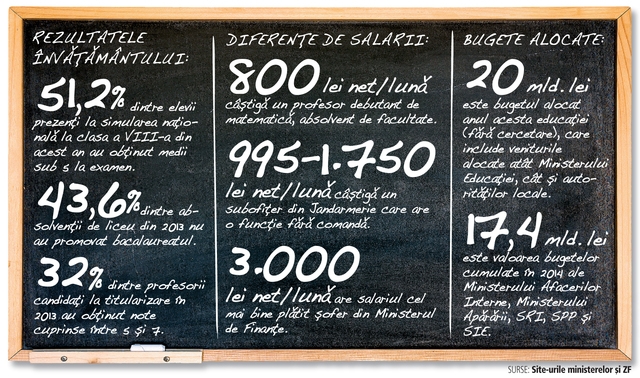 REZULTATELE
ÎNVĂȚĂMÂNTULUI:
51,2% dintre elevii
prezenți la simularea națio-
nală la clasa a VIII-a din
acest an au obținut medii
sub 5 la examen.
43,6% dintre ab-
solvenții de liceu din 2013 nu
au promovat bacalaureatul.
32% dintre profesorii
candidați la titularizare în
2013 au obținut note
cuprinse între 5 și 7.
DIFERENȚE DE SALARII:
800 lei net/lună
câștigă un profesor debutant de
matematică, absolvent de facultate.
995-1.750
lei net/lună câștigă un
subofițer din Jandarmerie care are
o funcție fără comandă.
3.000
lei net/lună are salariul cel
mai bine plătit șofer din Ministerul
de Finanțe.
BUGETE ALOCATE:
20 mld. lei
este bugetul alocat
anul acesta educației
(fără cercetare), care
include veniturile
alocate atât Ministerului
Educației, cât și auto-
rităților locale.
17,4 mld. lei
este valoarea bugetelor
cumulate în 2014 ale
Ministerului Afacerilor
Interne, Ministerului
Apărării, SRI, SPP și
SIE.
SURSE: Site-urile ministerelor și ZF